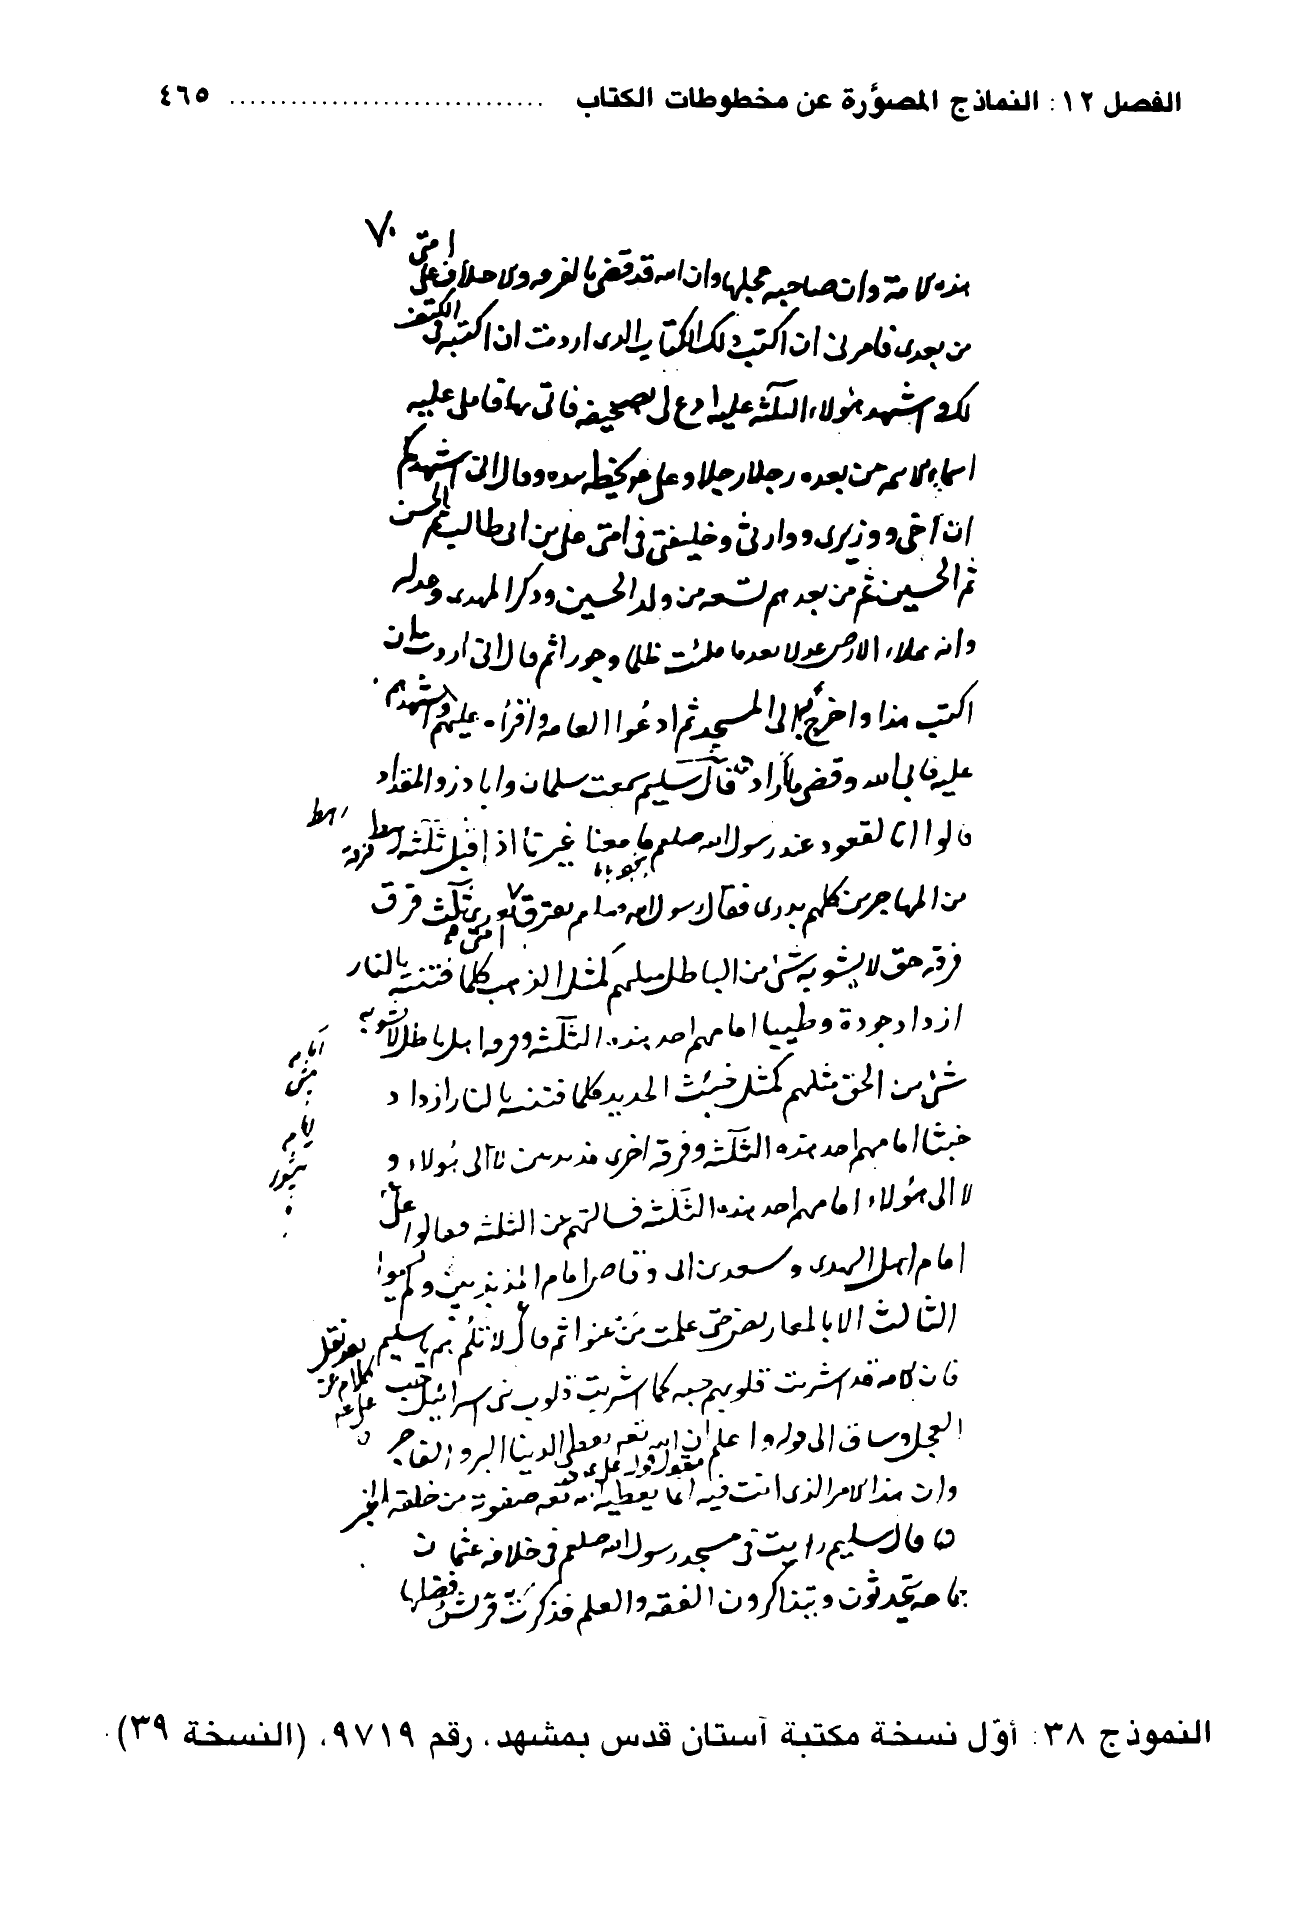 الفصل ١٢: النماذج المصوّرة عن مخطوطات الكتاب .............................. ٤٦٥
٧٠
هذه الامة وان صاحبه عجلها وان الله قد قضى بالفرقه والاختلاف على امتى
من بعدى فامرنى ان اكتب ذلك الكتاب الذى اردت ان اكتبه فى الكتف
لك واشهد هؤلاء الثلثة عليه ادع لى بصحيفه فاتى بها فاملى عليه
اسماء الائمه من بعده رجلا رجلا وعلى يخطه بيده وقال انى اشهدكم
ان اخى ووزيرى ووارثى وخليفتى فى امتى على بن ابى طالب ثم الحسن
ثم الحسين ثم من بعدهم تسعه من ولد الحسين وذكر المهدى وعدله
وانه يملاء الارض عدلا بعد ما ملئت ظلما وجورا ثم قال انى اردت ان
اكتب هذا واخرج به الى المسجد ثم ادعوا العامه واقرأه عليهم واشهدهم
عليه فابى الله وقضى ما اراد قال سليم سمعت سلمان وابا ذر والمقداد
قالوا انا لقعود عند رسول الله صلعم ما معنا غيرنا اذ اقبل ثلثة رهط
رهط
من المهاجرين كلهم بدرى فقال رسول الله تفترق امتى بعدى ثلث فرق
فرقه حق لا يشوبه شئ من الباطل مثلهم كمثل الذهب كلما فتنته بالنار
ازداد جودة وطيبا امامهم احد هذه الثلثه وفرقه اهل باطل لا يشوبه
شئ من الحق مثلهم كمثل خبث الحديد كلما فتنته بالنار ازداد
خبثا امامهم احد هذه الثلثه وفرقه اخرى مذبذبين لا الى هؤلاء و
لا الى هؤلاء امامهم احد هذه الثلثه فسالتهم عن الثلثه فقالوا على
امام اهل الهدى وسعد بن ابى وقاص امام المذبذبين ولم يسموا
الثالث الا بالمعاريض حتى علمت من عنوا ثم قال
فان الامه قد اشربت قلوبهم حبه كما اشربت قلوب بنى اسرائيل حب
العجل وساق الى قوله واعلم ان الله تعه يعطى الدينا البر و الفاجر
وان هذا الامر الذى انت فيه انما يعطيه الله تعه صفوته من خلقه الخبر
قال سليم رايت فى مسجد رسول الله صلعم فى خلافه عثمان
جماعه يتحدثون ويتذاكرون الفقه والعلم فذكرت قريش فضلها
النموذج ٣٨: أوّل نسخة مكتبة آستان قدس بمشهد، رقم ٩٧١٩، (النسخة ٣٩).